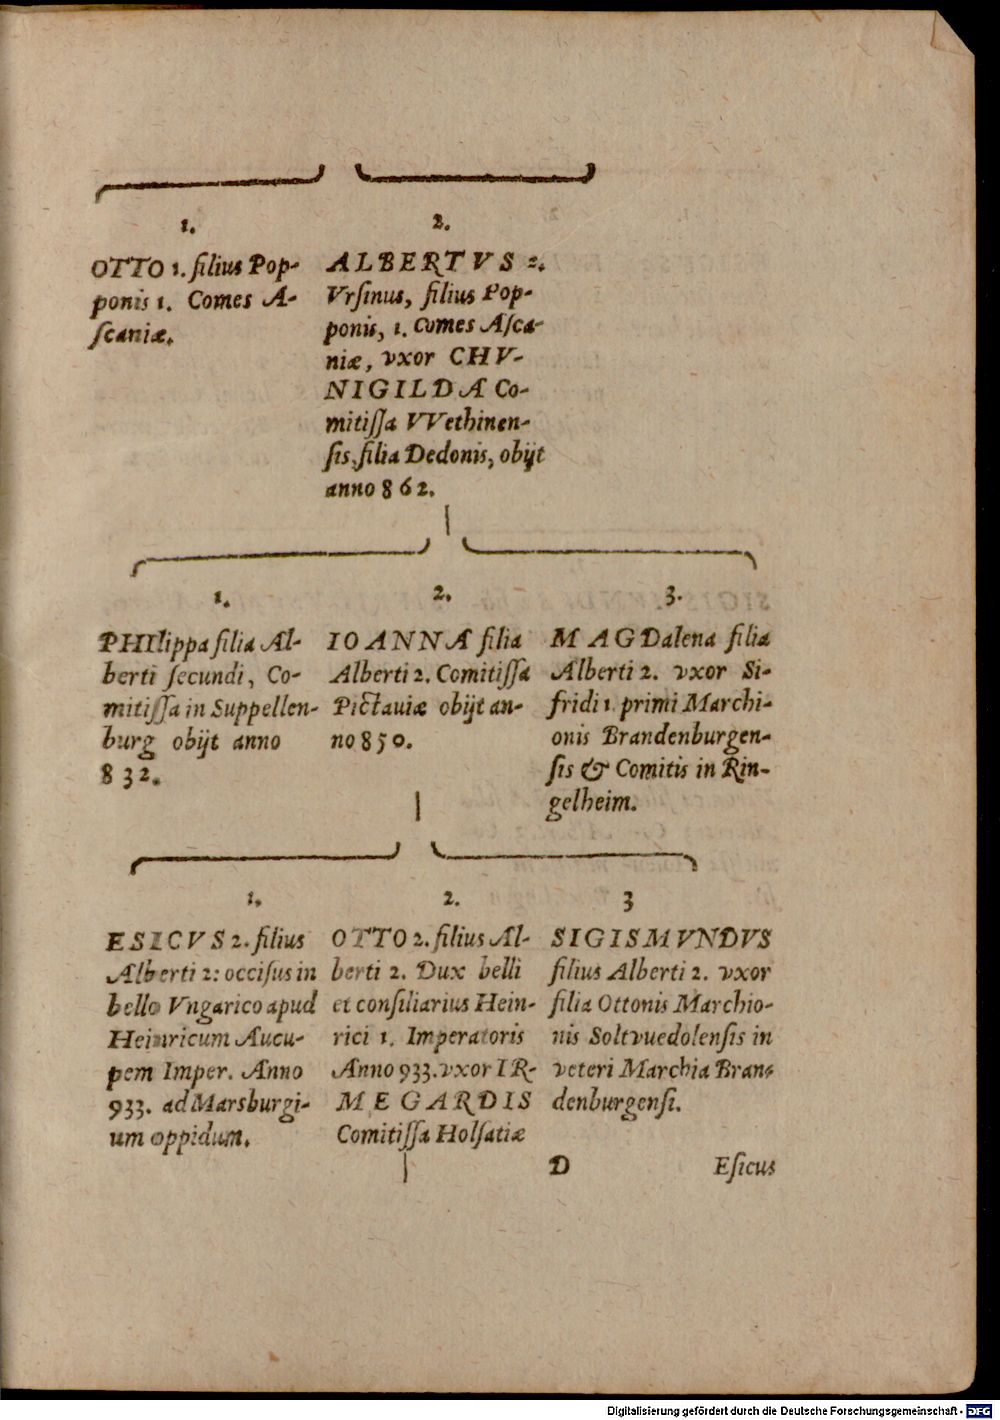 1.
OTTO 1. filius Pop-
ponis 1. Comes A-
ſcaniæ.
2.
ALBERTVS 2.
Vrſinus, filius Pop-
ponis, 1. comes Aſca-
niæ, vxor CHV-
NIGILDA Co-
mitiſſa VVethinen-
ſis, filia Dedonis, obijt
anno 862.
1.
PHIlippa filia Al-
berti ſecundi, Co-
mitiſſa in Suppellen-
burg obijt anno
832.
2.
IOANNA filia
Alberti 2. Comitiſſa
Pictauiæ obijt an-
no 850.
3.
MAGDalena filia
Alberti 2. vxor Si-
fridi 1. primi Marchi-
onis Brandenburgen-
ſis & Comitis in Rin-
gelheim.
1.
ESICVS 2. filius
Alberti 2: occiſus in
bello Vngarico apud
Heinricum Aucu-
pem Imper. Anno
933. ad Marsburgi-
um oppidum.
2.
OTTO 2. filius Al-
berti 2. Dux belli
et conſiliarius Hein-
rici 1. Imperatoris
Anno 933. vxor IR-
MEGARDIS
Comitiſſa Holſatiæ
3
SIGISMVNDVS
filius Alberti 2. vxor
filia Ottonis Marchio-
nis Soltvuedolenſis in
veteri Marchia Bran-
denburgenſi.
D Eſicus
Digitalisierung gefördert durch die Deutsche Forschungsgemeinschaft - DFG